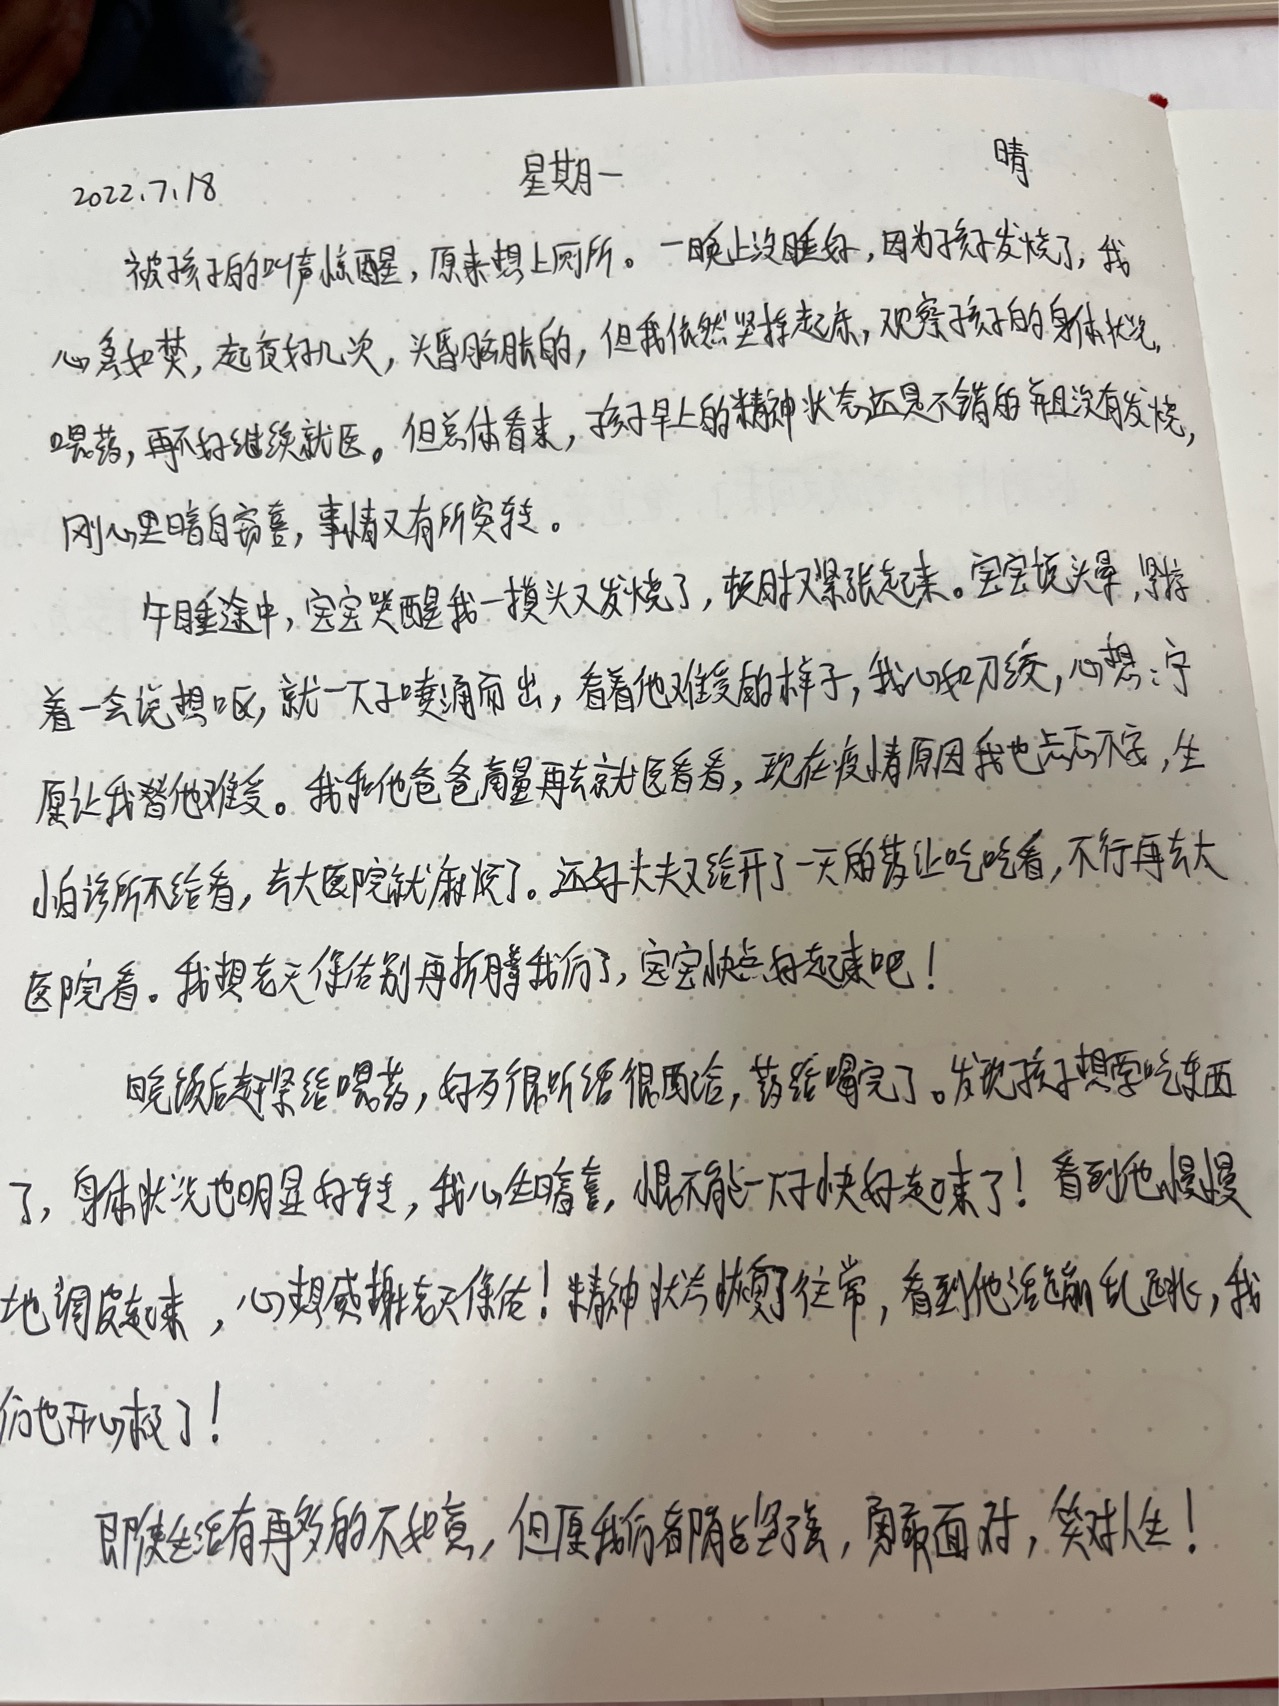 2022.7.18 星期一 晴
被孩子的叫声惊醒，原来想上厕所。一晚上没睡好，因为孩子发烧了，我
心急如焚，起夜好几次，头昏脑胀的，但我依然坚持起床，观察孩子的身体状况，
喂药，再不好继续就医。但总体看来，孩子早上的精神状态还是不错的并且没有发烧，
刚心里暗自窃喜，事情又有所突转。
午睡途中，宝宝哭醒我一摸头又发烧了，顿时又紧张起来。宝宝说头晕，紧接
着一会说想呕，就一下子喷涌而出，看着他难受的样子，我心如刀绞，心想：宁
愿让我替他难受。我和他爸爸商量再去就医看看，现在疫情原因我也忐忑不安，生
怕诊所不给看，去大医院就麻烦了。还好大夫又给开了一天的药让吃吃看，不行再去大
医院看。我想老天保佑别再折腾我们了，宝宝快点好起来吧！
晚饭后赶紧给喂药，好歹很听话很配合，药给喝完了。发现孩子想要吃东西
了，身体状况也明显好转，我心生暗喜，恨不能一下子快好起来了！看到他慢慢
地调皮起来，心想感谢老天保佑！精神状态恢复了往常，看到他活蹦乱跳，我
们也开心极了！
即使生活有再多的不如意，但愿我们都隋坚强，勇敢面对，笑对人生！